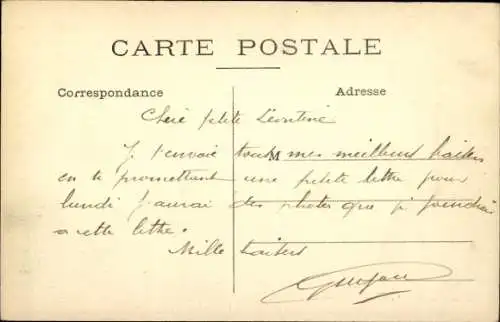 CARTE POSTALE
Correspondance
Adresse
Chère petite Léontine
Je t'envoie tous mes meilleurs baisers
M
en te promettant une petite lettre pour
lundi j'aurai des photos que je joindrai
a cette lettre.
Mille baisers